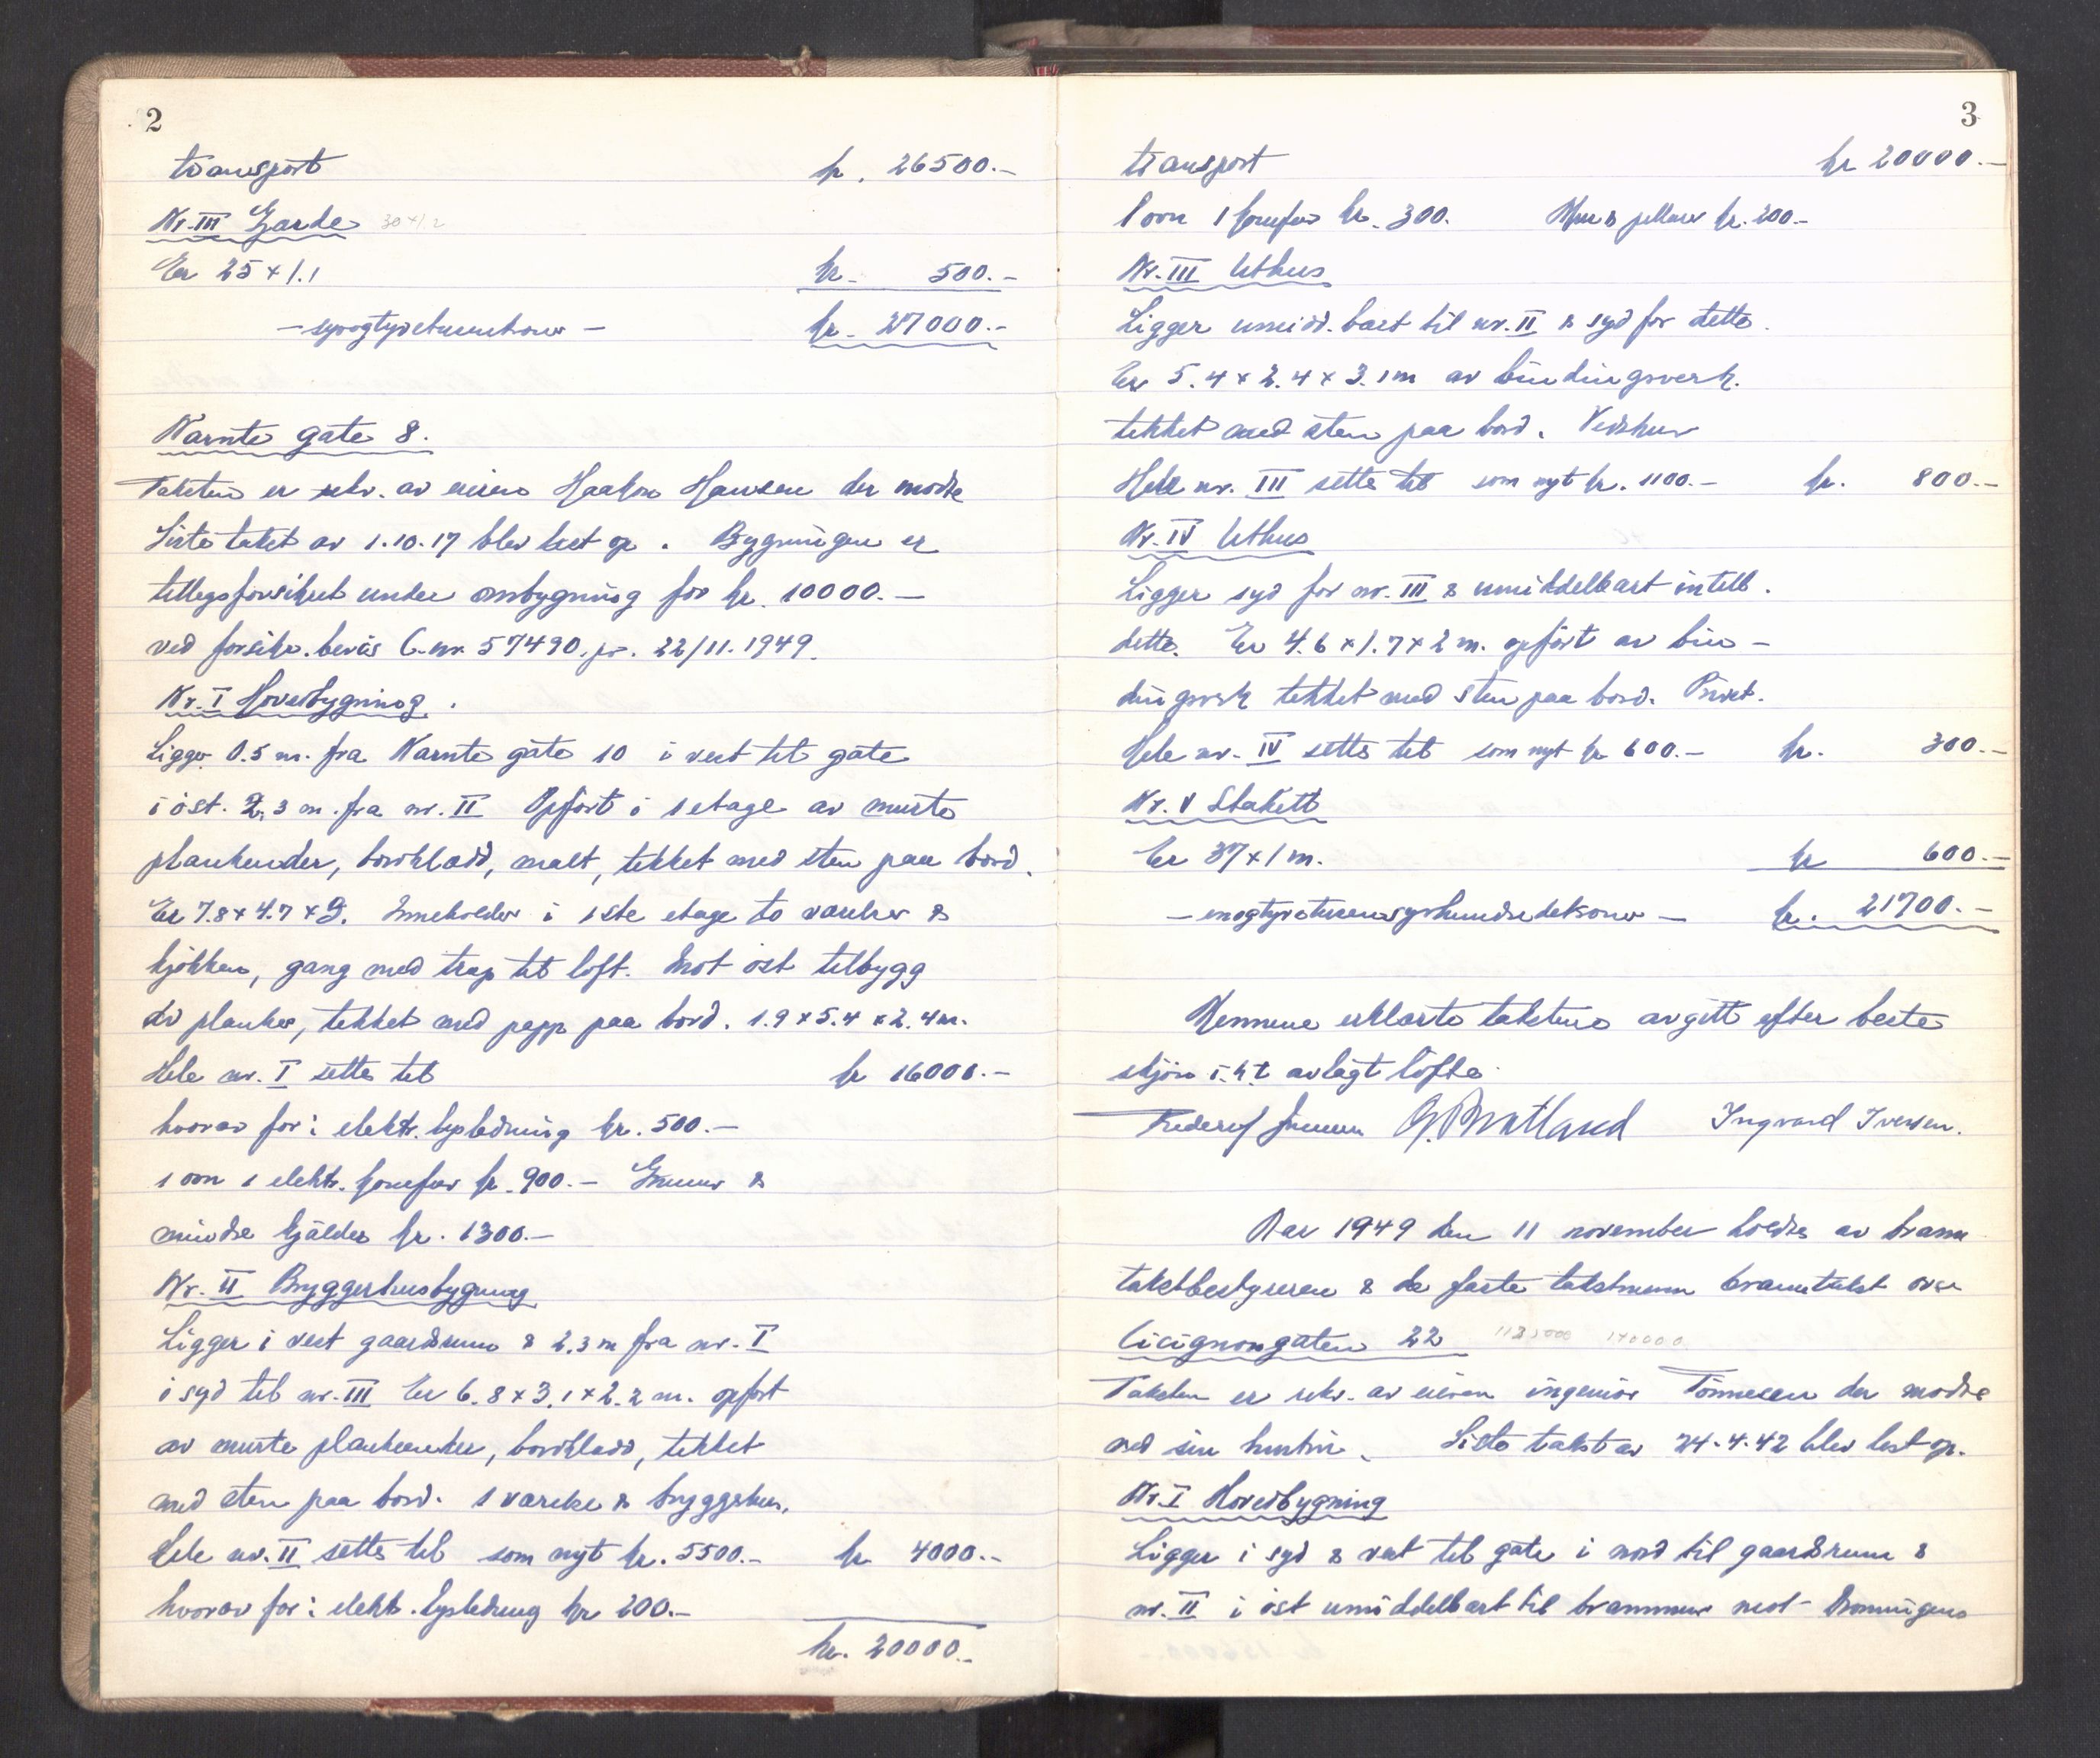 2
transport kr. 26500.-
Nr. III Garde 30×1.2
Er 25 × 1.1 kr. 500.-
- syvogtyvetusenkroner - kr. 27000.-
Karnte gate 8.
Taksten er rekv. av eieren Haakon Hansen der møtte
Siste takst av 1.10.17 blev lest op. Bygningen er
tilleggsforsikret under ombygning for kr. 10000.-
ved forsikr.bevis C.nr 57490 pr. 22/11.1949.
Nr. I Hovedbygning.
Ligger 0.5 m. fra Karnte gate 10 i vest til gate
i öst. 2.3 m. fra nr. II Opfört i 1 etage av murte
plankender, bordklædd, malt, tekket med sten paa bord.
Er 7.8 × 4.7 × 5. Inneholder i 1ste etage to værelser &
kjökken, gang med trap til loft. Mot öst tilbygg
av planker, tekket med papp paa bord. 1.9 × 5.4 × 2.4 m.
Hele nr. I settes til kr 16000.-
hvorav for: elektr. lysledning kr. 500.-
1 ovn 1 elektr. komfur kr. 900.- Grunnmur &
mindre kjælder kr. 1300.-
Nr. II Bryggerhusbygning
Ligger i vest gaardsrum & 2.3 m fra nr. I
i syd til nr. III Er 6.8 × 3.1 × 2.2 m. opfört
av murte plankeender, bordklædd, tekket
med sten paa bord. 1 værelse & bryggerhus.
Hele nr. II settes til som nytt kr. 5500.- kr 4000.-
hvorav for: elektr. lysledning kr 200.-
kr. 20000.-
3
transport kr 20000.-
1 ovn 1 komfur kr. 300. Mur & pillarer kr. 200.-
Nr. III Uthus
Ligger umidd.bart til nr. II & syd for dette.
Er 5.4 × 2.4 × 3.1 m av bindingsverk.
tekket med sten paa bord. Vedskur
Hele nr. III settes til som nytt kr. 1100.- kr. 800.-
Nr. IV Uthus
Ligger syd for nr. III & umiddelbart intill.
dette. Er 4.6 × 1.7 × 2 m. opfört av bin-
dingsverk tekket med sten paa bord. Privet.
Hele nr. IV settes til som nytt kr 600.- kr. 300.-
Nr. V Stakett
Er 37 × 1 m. kr 600.-
- enogtyvetusensyvhundredekroner - kr. 21700.-
Mennene erklærte takstene avgitt efter beste
skjön i.h.t avlagt löfte.
Ingvard Iversen.
Aar 1949 den 11 november holdtes av brann
takstbestyreren & de faste takstmenn branntakst over
Cicignongaten 22 170000
Taksten er rekv. av eieren ingeniör Tönnesen der mödte
ved sin hustru. Siste takst av 24.4.42 blev lest op.
Nr. I Hovedbygning
Ligger i syd & vest til gate i nord til gaardsrum &
nr. II i öst umiddelbart til brannmur mot Dronningens